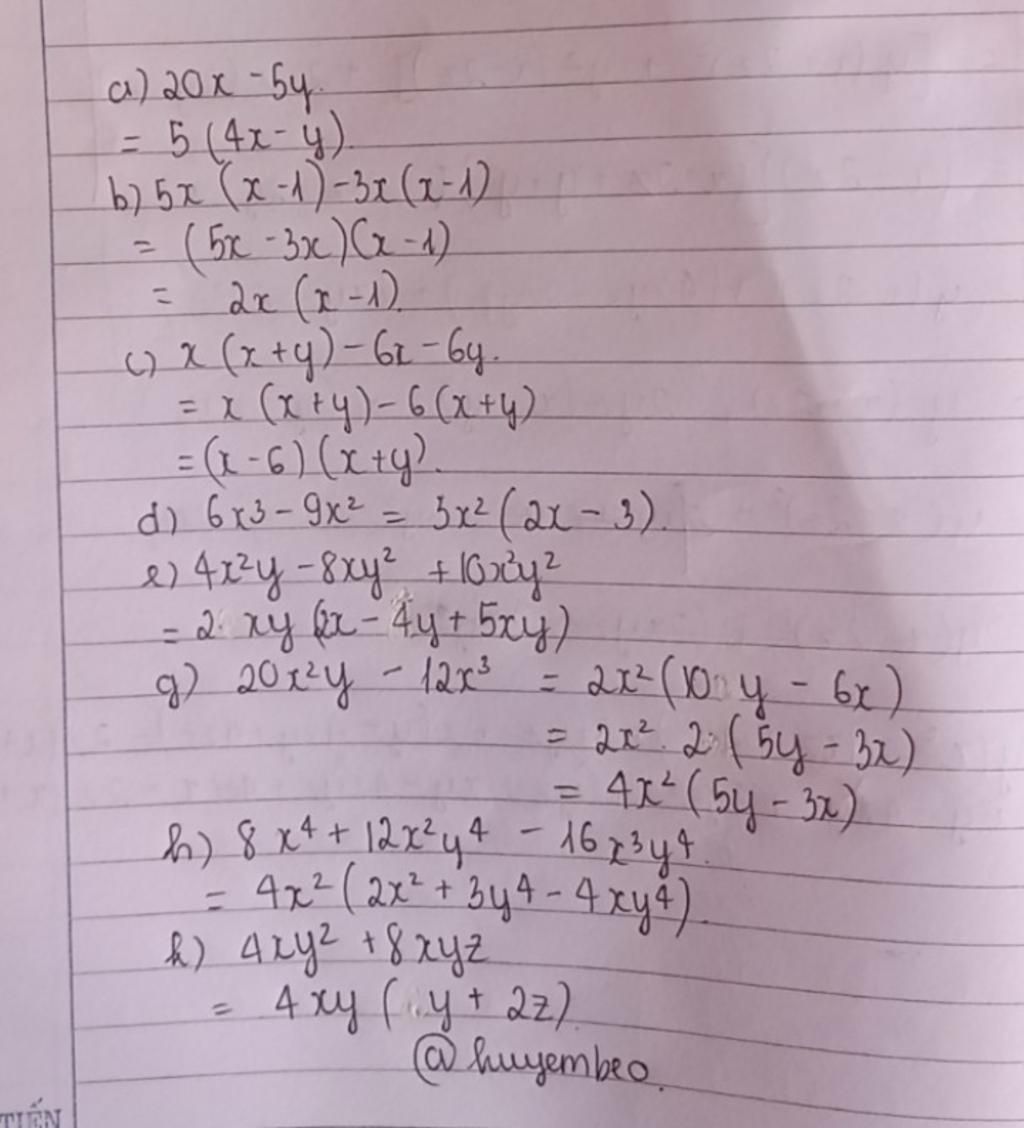 a) 20x - 5y.
= 5 (4x - y).
b) 5x (x - 1) - 3x (x - 1)
= (5x - 3x)(x - 1)
= 2x (x - 1).
c) x (x + y) - 6x - 6y.
= x (x + y) - 6 (x + y)
= (x - 6) (x + y).
d) 6x³ - 9x² = 3x² (2x - 3).
e) 4x²y - 8xy² + 10x²y²
= 2 xy (2x - 4y + 5xy)
g) 20x²y - 12x³ = 2x² (10 y - 6x)
= 2x². 2 (5y - 3x)
= 4x² (5y - 3x)
h) 8 x⁴ + 12x²y⁴ - 16 x³y⁴.
= 4x² (2x² + 3y⁴ - 4xy⁴).
k) 4xy² + 8xyz
= 4xy ( y + 2z).
@huyembeo.
TIẾN